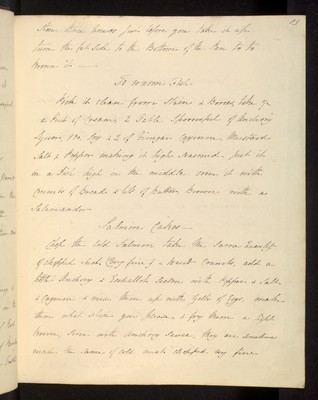 three hours just before you take it up
turn the fat side to the Bottom of the Pan to
Brown it
To warm Fish
Pick it clean from Skin & Bones, take
a Pint of Cream 2 Table Spoonsful of Anchovy
Do. Soy & 2 of Vinegar Cayenne, Mustard
Salt & Pepper making it high Seasoned put it
in a Dish high in the middle cover it with
Crumbs of Bread & bits of Butter Brown with a
Salamander
Salmon Cakes
Chop the Cold Salmon take the same Quantity
of chopped Suet (very fine) & bread Crumbs, add a
little Anchovy & Eschallots Season with Pepper & Salt
& Cayenne & mix them up with Yolks of Eggs, make
them what shape you please, & fry them a light
brown, serve with Anchovy Sauce they are
made the same of cold meat chopped very fine